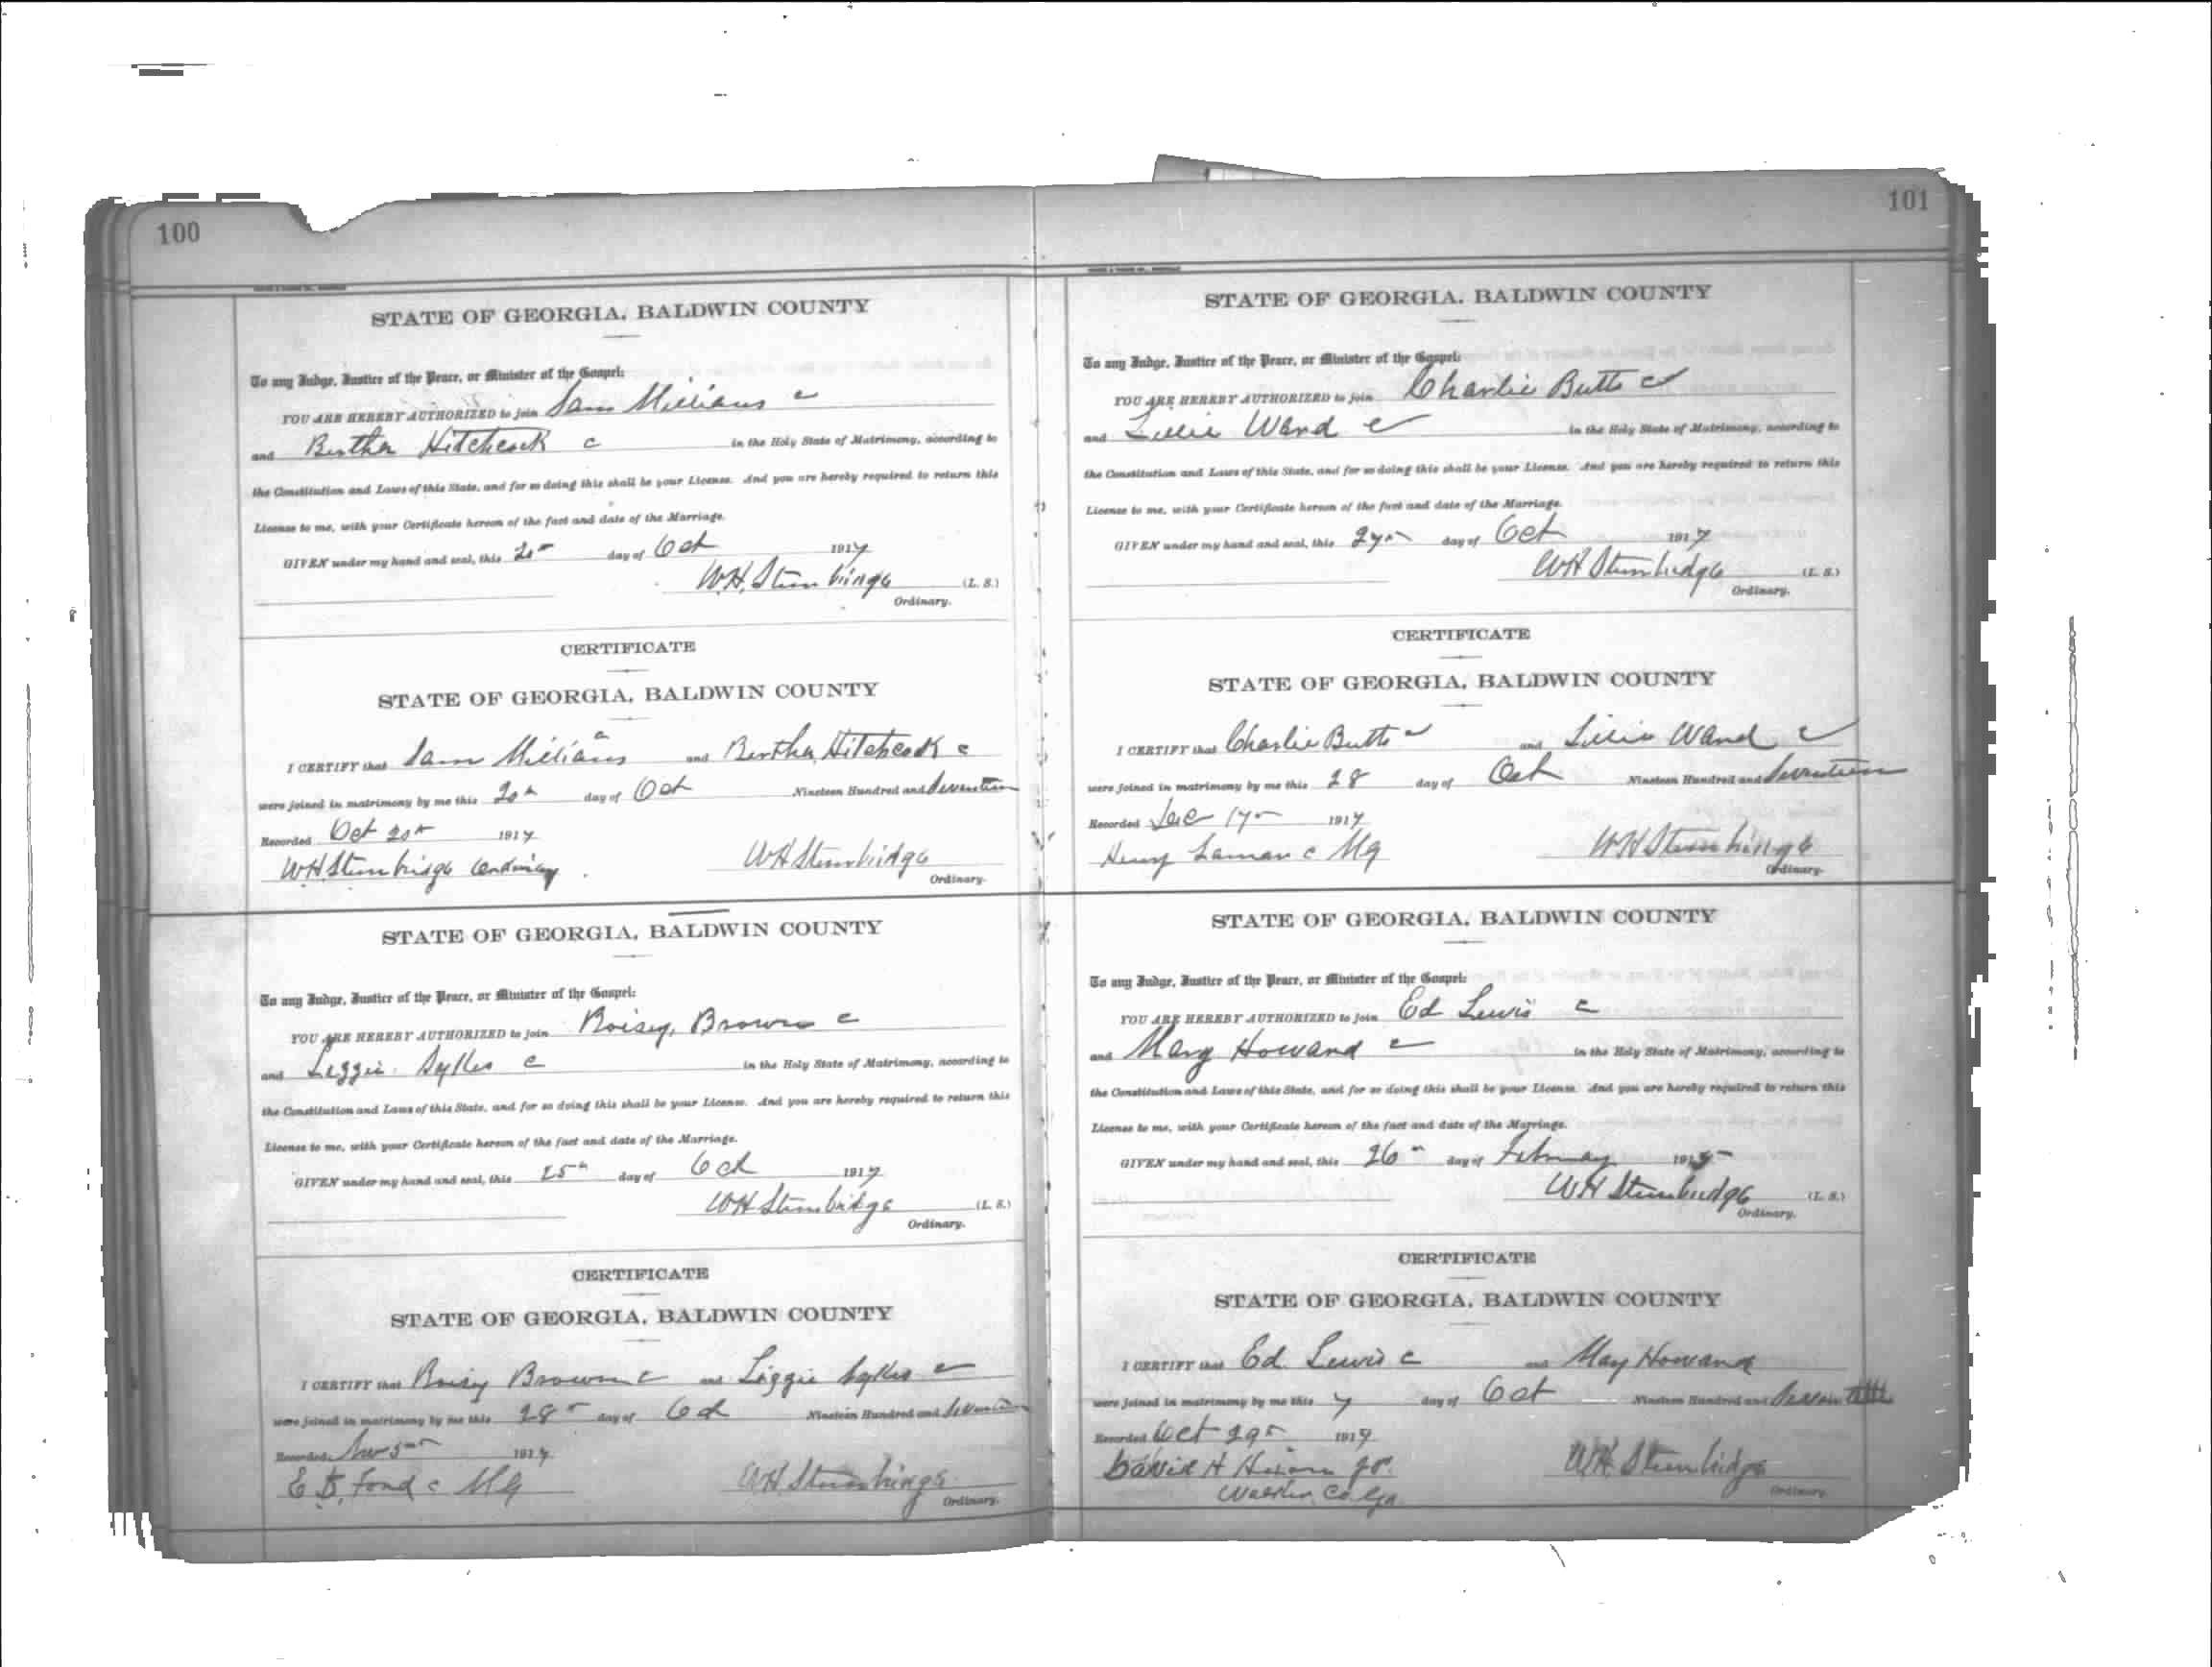 100
STATE OF GEORGIA, BALDWIN COUNTY
To any Judge, Justice of the Peace, or Minister of the Gospel:
YOU ARE HEREBY AUTHORIZED to join Sam Millians c
and Bertha Hitchcock c in the Holy State of Matrimony, according to
the Constitution and Laws of this State, and for so doing this shall be your License. And you are hereby required to return this
License to me, with your Certificate hereon of the fact and date of the Marriage.
GIVEN under my hand and seal, this 20th day of Oct 1917
W.H. Stembridge (L. S.)
Ordinary.
CERTIFICATE
STATE OF GEORGIA, BALDWIN COUNTY
I CERTIFY that Sam Millians c and Bertha Hitchcock c
were joined in matrimony by me this 20th day of Oct Nineteen Hundred and Seventeen
Recorded Oct 20th 1917
W.H. Stembridge Ordinary W H Stembridge
Ordinary.
STATE OF GEORGIA, BALDWIN COUNTY
To any Judge, Justice of the Peace, or Minister of the Gospel:
YOU ARE HEREBY AUTHORIZED to join Roisy Brown c
and Lizzie Sykes c in the Holy State of Matrimony, according to
the Constitution and Laws of this State, and for so doing this shall be your License. And you are hereby required to return this
License to me, with your Certificate hereon of the fact and date of the Marriage.
GIVEN under my hand and seal, this 25th day of Oct 1917
W H Stembridge (L. S.)
Ordinary.
CERTIFICATE
STATE OF GEORGIA, BALDWIN COUNTY
I CERTIFY that Roisy Brown c and Lizzie Sykes c
were joined in matrimony by me this 28th day of Oct Nineteen Hundred and Seventeen
Recorded Nov 5th 1917
Ford c M G W H Stembridge
Ordinary.
101
STATE OF GEORGIA, BALDWIN COUNTY
To any Judge, Justice of the Peace, or Minister of the Gospel:
YOU ARE HEREBY AUTHORIZED to join Charlie Butts c
and Lillie Ward c in the Holy State of Matrimony, according to
the Constitution and Laws of this State, and for so doing this shall be your License. And you are hereby required to return this
License to me, with your Certificate hereon of the fact and date of the Marriage.
GIVEN under my hand and seal, this 27th day of Oct 1917
W H Stembridge (L. S.)
Ordinary.
CERTIFICATE
STATE OF GEORGIA, BALDWIN COUNTY
I CERTIFY that Charlie Butts c and Lillie Ward c
were joined in matrimony by me this 28 day of Oct Nineteen Hundred and Seventeen
Recorded Dec 17th 1917
Henry Lamar c M G W H Stembridge
Ordinary.
STATE OF GEORGIA, BALDWIN COUNTY
To any Judge, Justice of the Peace, or Minister of the Gospel:
YOU ARE HEREBY AUTHORIZED to join Ed Lewis c
and Mary Howard c in the Holy State of Matrimony, according to
the Constitution and Laws of this State, and for so doing this shall be your License. And you are hereby required to return this
License to me, with your Certificate hereon of the fact and date of the Marriage.
GIVEN under my hand and seal, this 26th day of February 1915
W H Stembridge (L. S.)
Ordinary.
CERTIFICATE
STATE OF GEORGIA, BALDWIN COUNTY
I CERTIFY that Ed Lewis c and May Howard
were joined in matrimony by me this 7 day of Oct Nineteen Hundred and
Recorded Oct 29th 1917
David H J.P. W H Stembridge
Co Ga Ordinary.